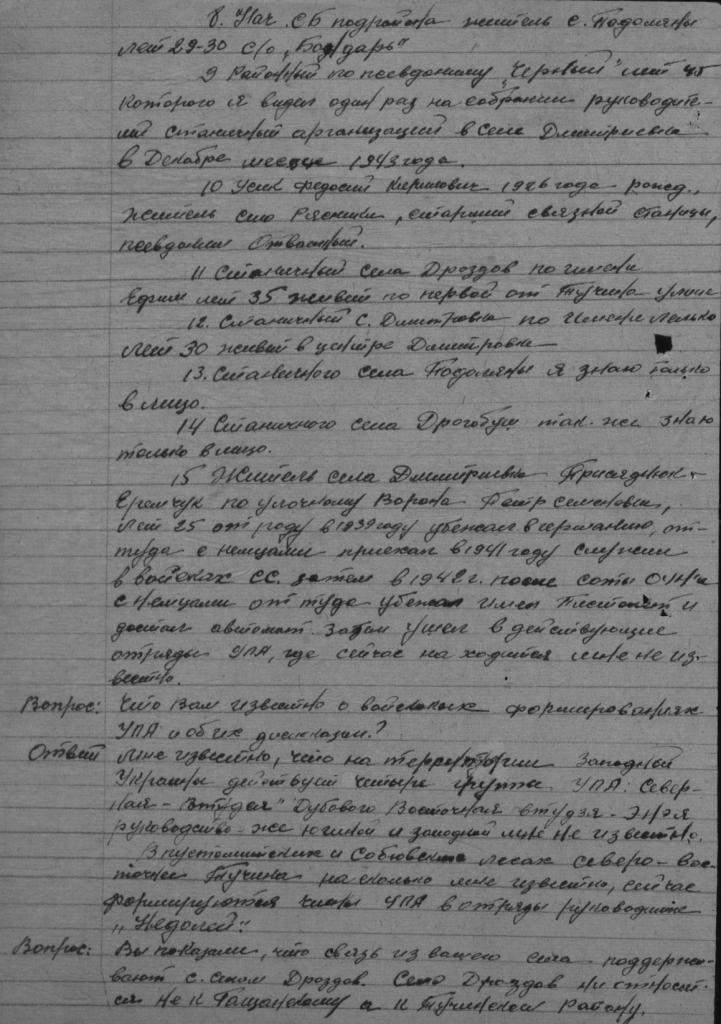 8. Нач. СБ подрайона житель с. Подоляны
лет 29-30 с/о „Бондарь"
9 Районный по псевдониму „Черный" лет 45
которого я видел один раз на собрании руководите-
лей станичный организаций в селе Дмитриевка
в Декабре месяце 1943 года.
10 Усик Федосий Кирилович 1926 года рожд.,
житель село Рясники, старший связной станицы,
псевдоним Отважный.
11 Станичный села Дроздов по имени
Ефим лет 35 живет по первой от Тучина улице
12. Станичный с. Дмитровка по имени
лет 30 живет в центре Дмитровки
13. Станичного села Подоляны я знаю только
в лицо.
14 Станичного села Дрогобуш так-же знаю
только в лицо.
15 Житель села Дмитриевка
по улочному Ворона Петр Семенович,
лет 25 от роду в 1939 году убежал в Германию, от-
туда с немцами приехал в 1941 году служил
в войсках СС. затем в 1942 г. после
с немцами оттуда убежал имел Пистолет и
достал автомат. Затем ушел в действующие
отряды УПА, где сейчас находится мне не из-
вестно.
Вопрос: Что Вам известно о войсковых формированиях
УПА и об их дислокации?
Ответ Мне известно, что на территории Западной
Украины действует четыре группы УПА: Север-
ная - Дубового Восточная Энэя
руководство-же южной и западной мне не известно.
В пустомитских и лесах северо-вос-
точнее Тучина насколько мне известно, сейчас
формируются УПА в отряды руководит
„Недоля".
Вопрос: Вы показали, что связь из вашего села поддержи-
вают с селом Дроздов. Село Дроздов относит-
ся не к Гощанскому а к Тучинском району.